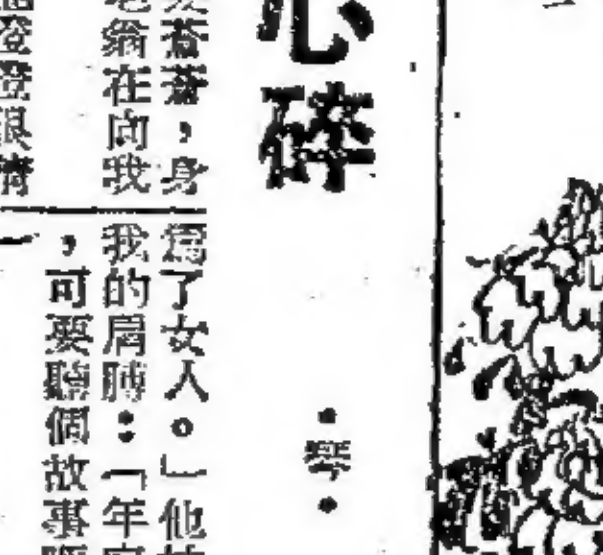 心碎
•琴•
蒼蒼，身
翁在向我
澄澄眼
爲了女人。」他
我的肩膊：「年
，可要聽個故事